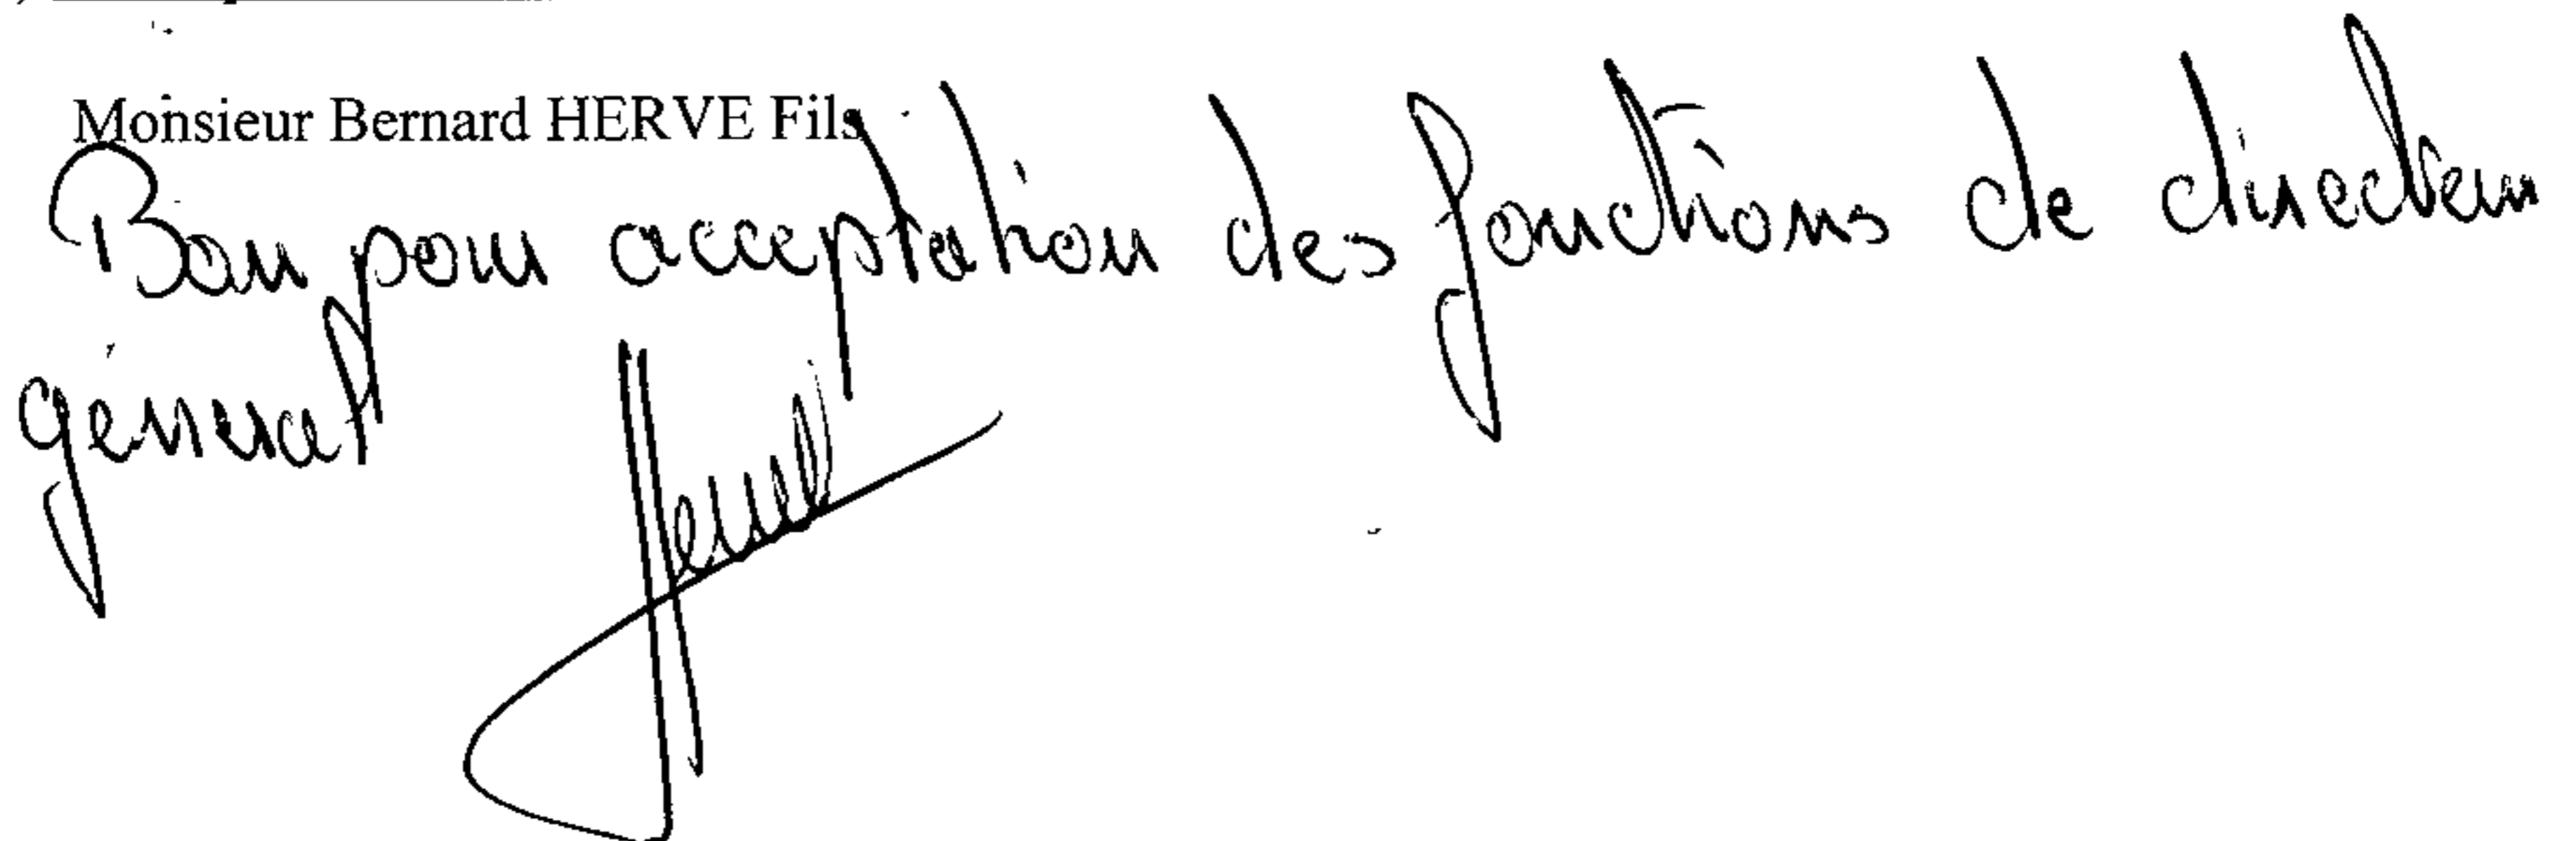 Monsieur Bernard HERVE Fils
Bon pour acceptation des fonctions de directeur
général